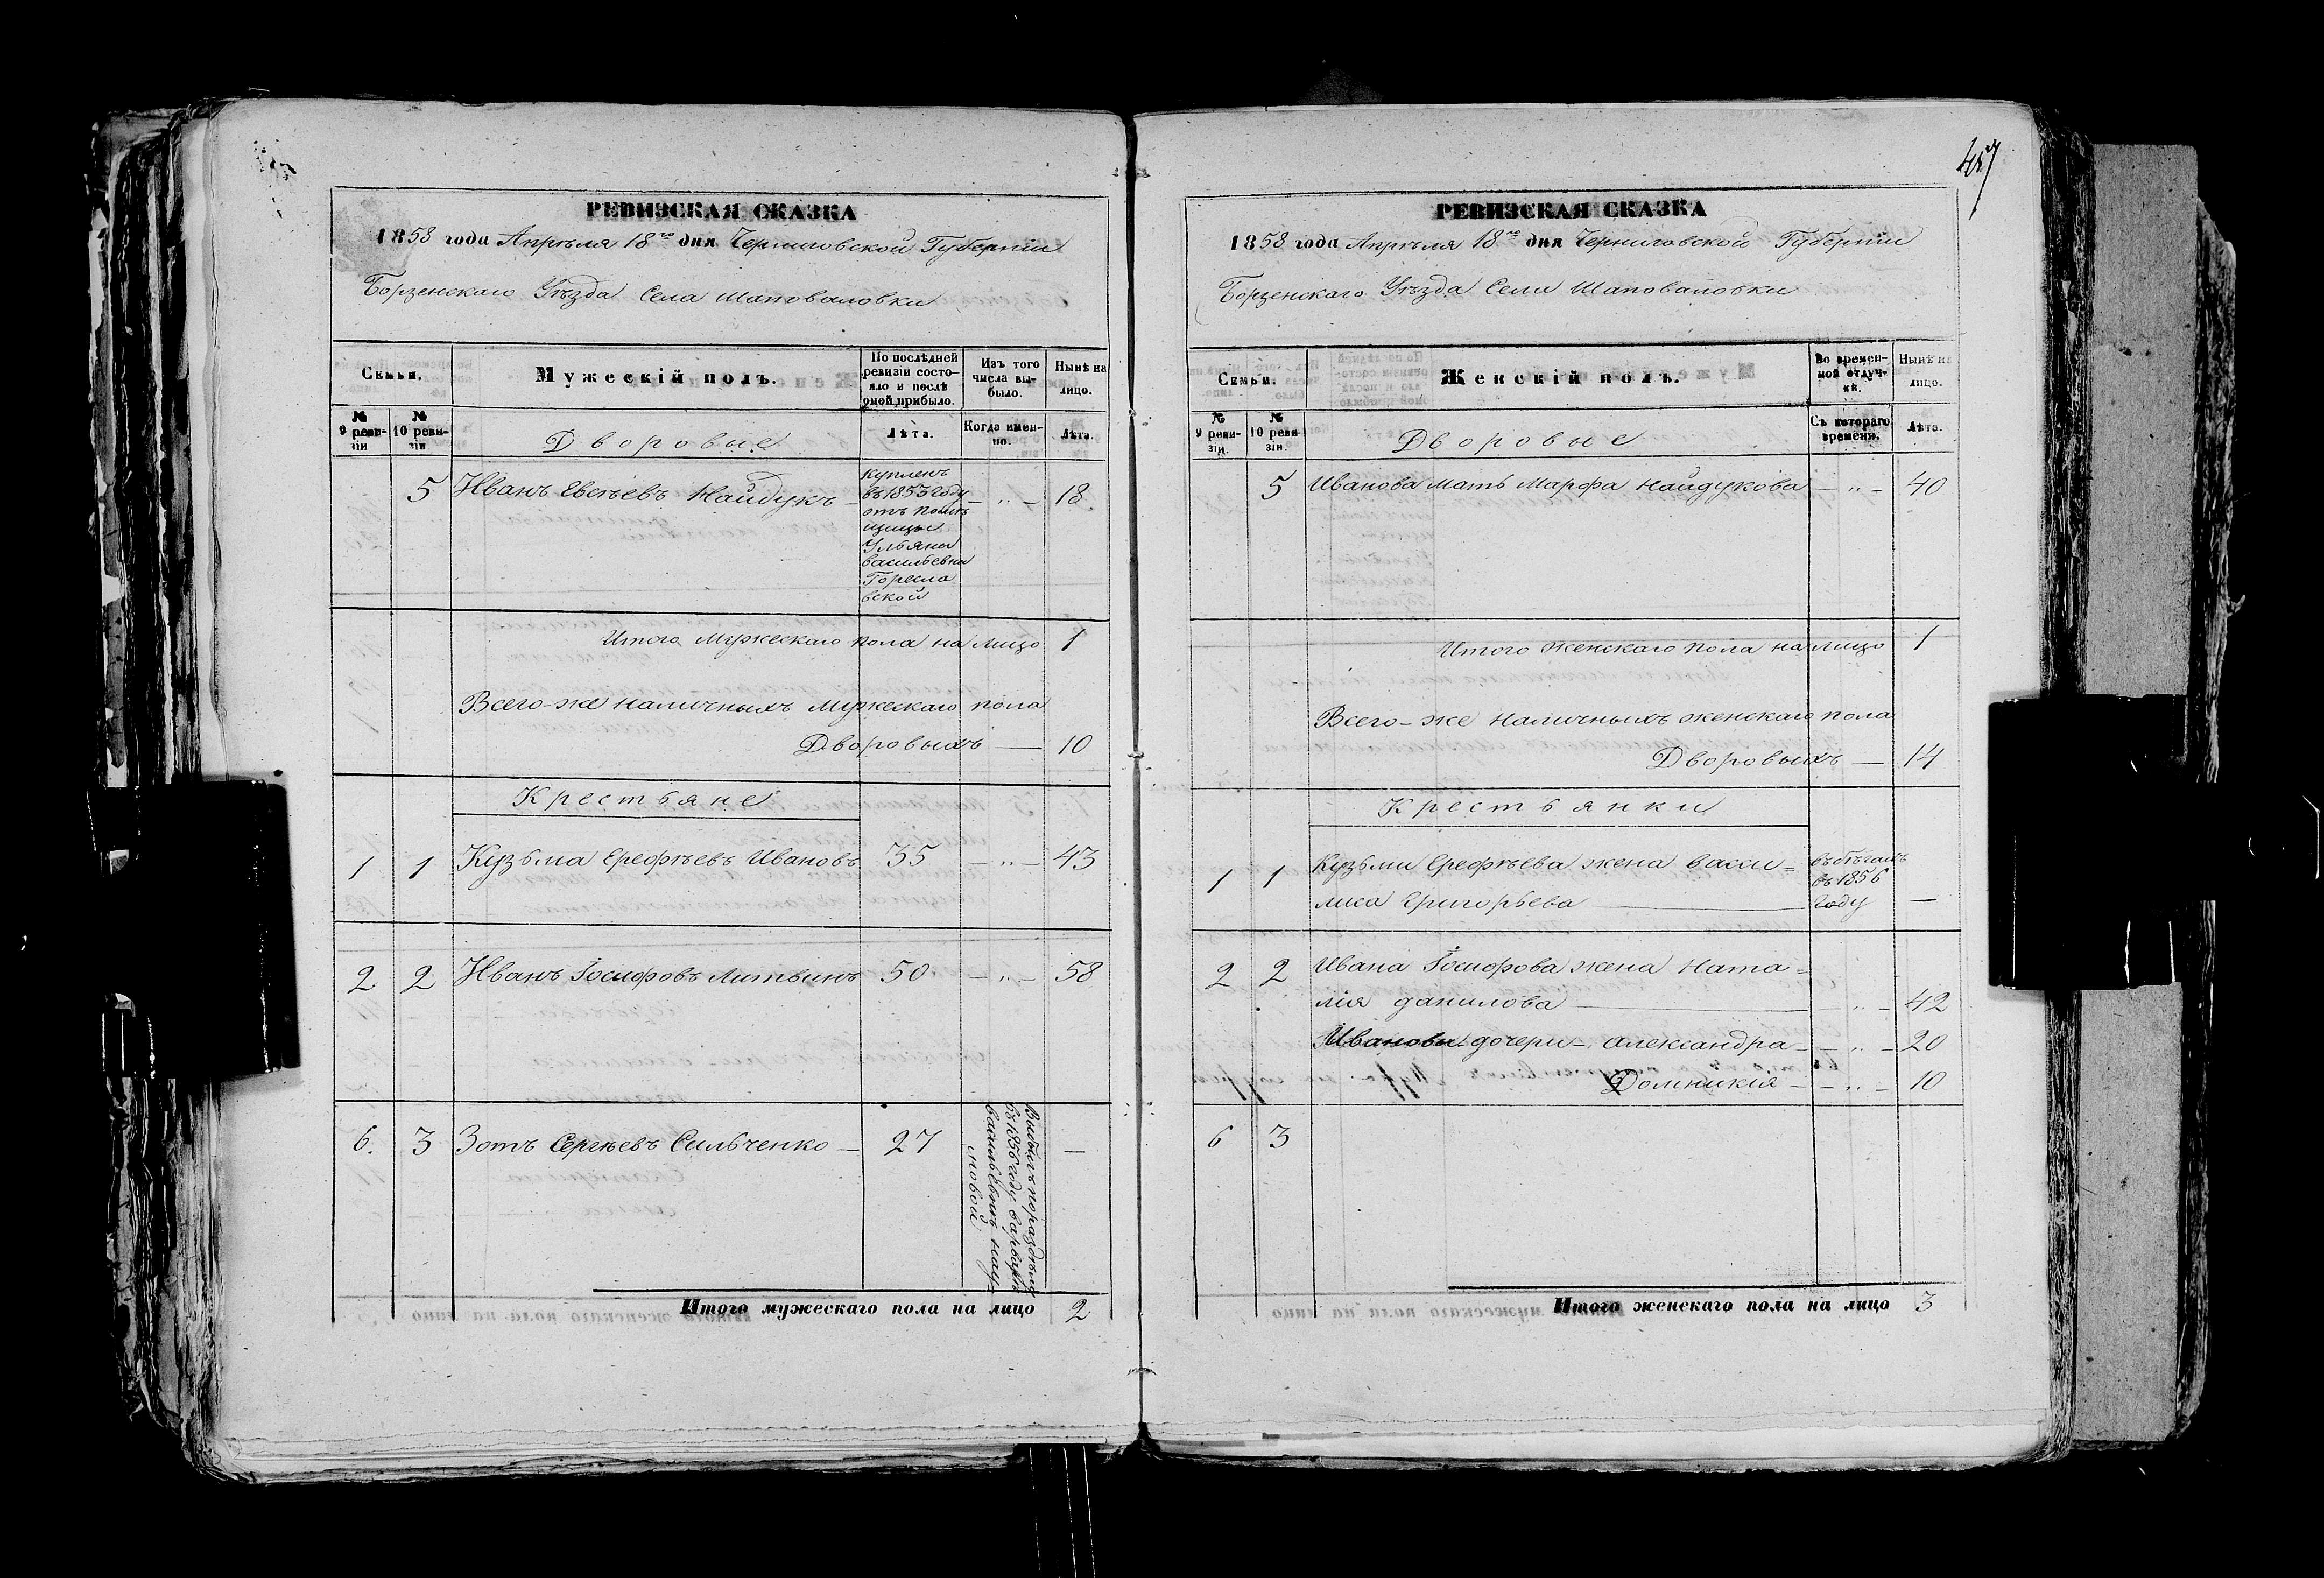 457
РЕВИЗСКАЯ СКАЗКА
1858 года Апрѣля 18го дня Черниговской Губерніи
Борзенскаго Уѣзда Села Шаповаловки
Семьи.
Мужескій полъ.
По послѣдней ревизіи состояло и послѣ оной прибыло.
Изъ того числа выбыло.
Нынѣ на лицо.
№ 9 ревизіи
№ 10 ревизіи
Дворовые
Лѣта.
Когда именно.
Лѣта.
5 Иванъ Евсѣевъ Найдукъ — — „ — 18
купленъ
въ 1853 году
отъ помѣ
щицы
Ульяны
васильевны
Горесла
вской
Итого мужескаго пола на лицо 1
Всего-же наличныхъ мужескаго пола
Дворовыхъ — 10
Крестьяне
1 1 Кузьма Ерефѣевъ Ивановъ 35 — „ — 43
2 2 Иванъ Іосифовъ Литвинъ 50 — „ — 58
6. 3 Зотъ Сергѣевъ Сильченко — 27 —
Выбылъ по раздѣлу
въ 1856 году варварѣ
васильевнѣ нау-
мовой
Итого мужескаго пола на лицо 2
РЕВИЗСКАЯ СКАЗКА
1858 года Апрѣля 18го дня Черниговской Губерніи
Борзенскаго Уѣзда Села Шаповаловки
Семьи.
Женскій полъ.
Во временной отлучкѣ.
Нынѣ на лицо.
№ 9 ревизіи.
№ 10 ревизіи.
Дворовые
Съ котораго времени.
Лѣта.
5 Иванова мать Марфа Найдукова — „ — 40
Итого женскаго пола на лицо 1
Всего-же наличныхъ женскаго пола
Дворовыхъ — 14
Крестьянки
1 1 Кузьми Ерефѣева жена васи=
лиса Григорьева —
въ бѣгахъ
въ 1856
году
2 2 Ивана Іосифова жена Ната=
лія данилова — „ — 42
Ивановы дочери — александра — „ — 20
Домникія — „ — 10
6 3
Итого женскаго пола на лицо 3